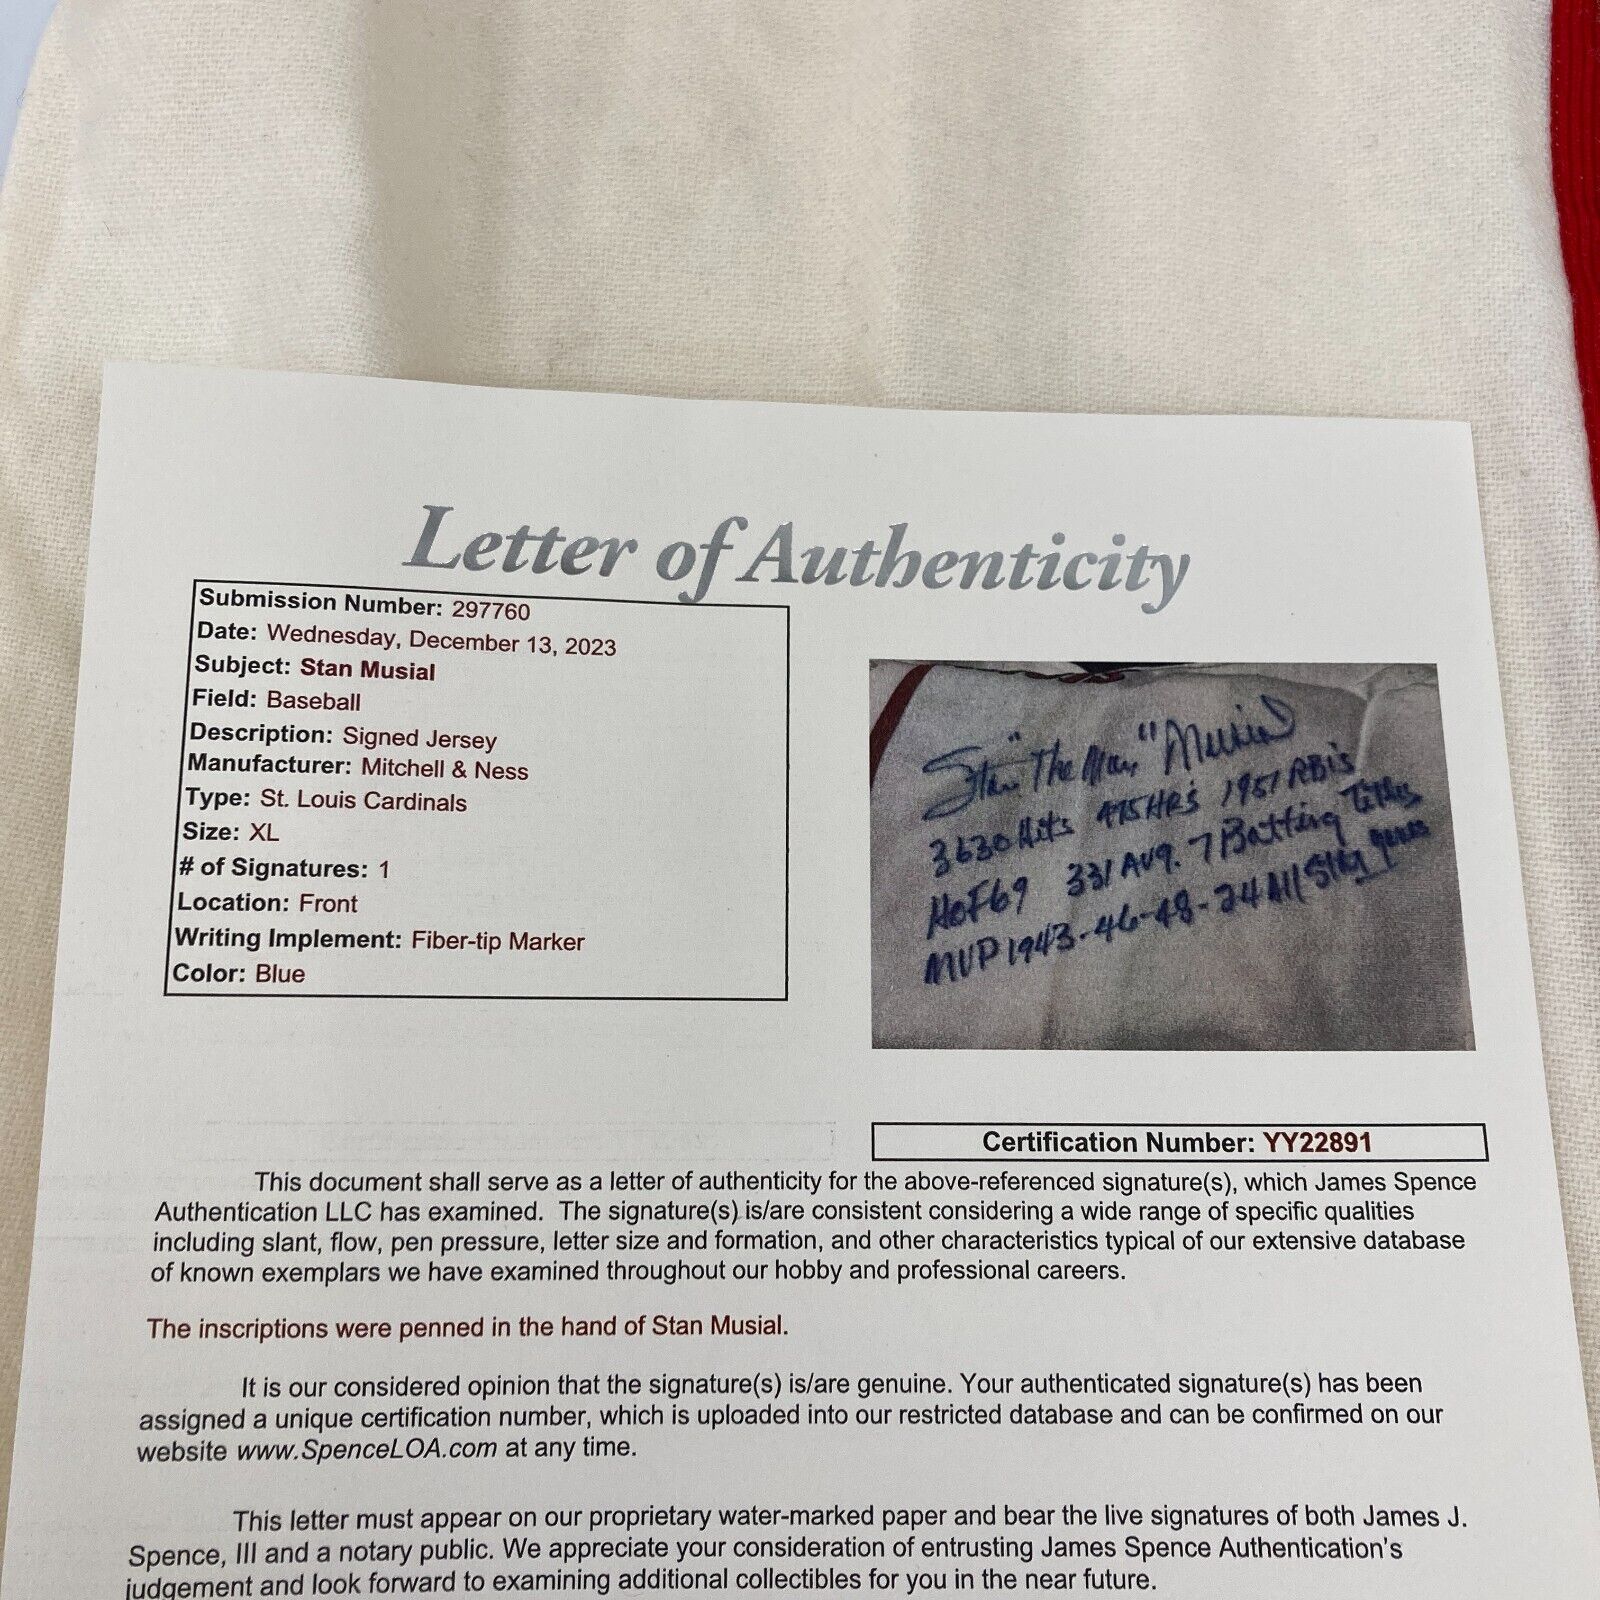 Letter of Authenticity
Submission Number: 297760
Date: Wednesday, December 13, 2023
Subject: Stan Musial
Field: Baseball
Description: Signed Jersey
Manufacturer: Mitchell & Ness
Type: St. Louis Cardinals
Size: XL
# of Signatures: 1
Location: Front
Writing Implement: Fiber-tip Marker
Color: Blue
Stan "The Man" Musial
3630 Hits 475 HR's 1951 RBI's
HOF69 331 AVG. 7 Batting Titles
MVP 1943-46-48-24 All Star Games
Certification Number: YY22891
This document shall serve as a letter of authenticity for the above-referenced signature(s), which James Spence
Authentication LLC has examined. The signature(s) is/are consistent considering a wide range of specific qualities
including slant, flow, pen pressure, letter size and formation, and other characteristics typical of our extensive database
of known exemplars we have examined throughout our hobby and professional careers.
The inscriptions were penned in the hand of Stan Musial.
It is our considered opinion that the signature(s) is/are genuine. Your authenticated signature(s) has been
assigned a unique certification number, which is uploaded into our restricted database and can be confirmed on our
website www.SpenceLOA.com at any time.
This letter must appear on our proprietary water-marked paper and bear the live signatures of both James J.
Spence, III and a notary public. We appreciate your consideration of entrusting James Spence Authentication's
judgement and look forward to examining additional collectibles for you in the near future.